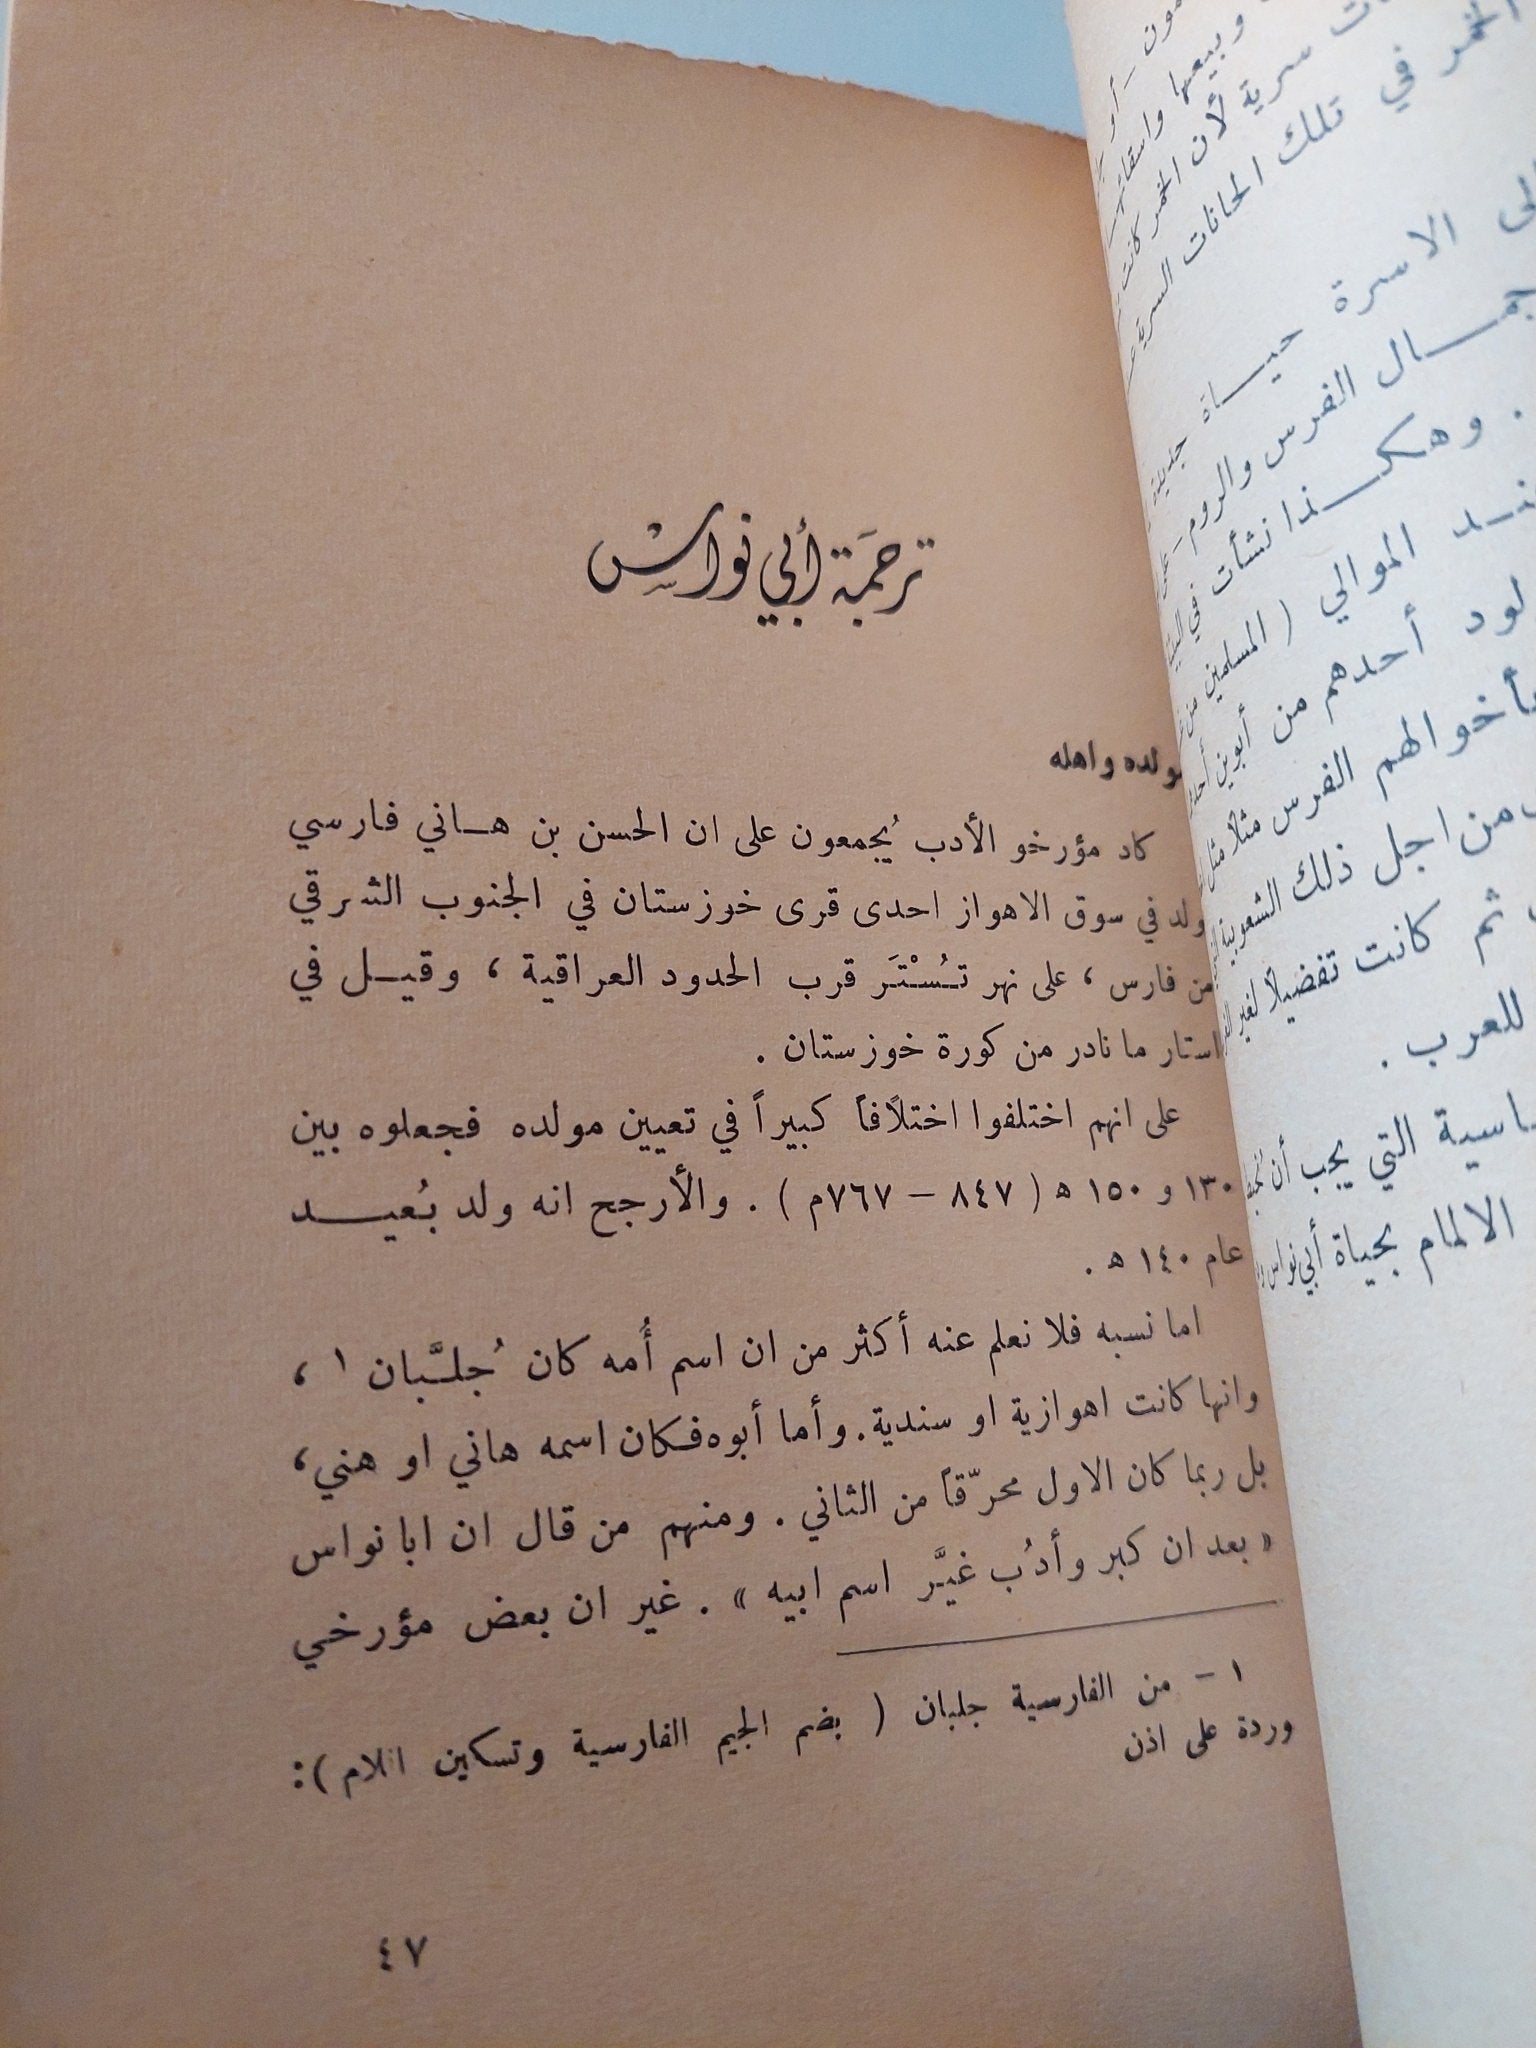 مون – أو
وبيعها واسقا
ات سرية لأن الخمر كانت
الخمر في تلك الحانات السرية
لى الاسرة حيـــاة جديدة
جمـــال الفرس والروم – على
. وهكــذا نشأت في البيت
نــد الموالي ( المسلمين من
لود أحدهم من أبوين أحد
أخوالهم الفرس مثلاً مثل
من اجل ذلك الشعوبية
ثم كانت تفضيلاً لغير
للعرب .
اسية التي يجب أن
الالمام بحياة أبي نواس
ترجمَة أبي نواس
مولده واهله
كاد مؤرخو الأدب يُجمعون على ان الحسن بن هــاني فارسي
ولد في سوق الاهواز احدى قرى خوزستان في الجنوب الشرقي
من فارس ، على نهر تـُسْتَر قرب الحدود العراقية ، وقيــل في
استار ما نادر من كورة خوزستان .
على انهم اختلفوا اختلافاً كبيراً في تعيين مولده فجعلوه بين
١٣٠ و ١٥٠ ه ( ٨٤٧ – ٧٦٧م ) . والأرجح انه ولد بـُعيـــد
عام ١٤٠ ه .
اما نسبه فلا نعلم عنه أكثر من ان اسم أُمه كان جُلـَّبان ١ ،
وانها كانت اهوازية او سندية . وأما أبوه فكان اسمه هاني او هني ،
بل ربما كان الاول محرّقاً من الثاني . ومنهم من قال ان ابا نواس
« بعد ان كبر وأدُب غيَّر اسم ابيه » . غير ان بعض مؤرخي
١ – من الفارسية جلبان ( بضم الجيم الفارسية وتسكين اللام ) :
وردة على اذن
٤٧